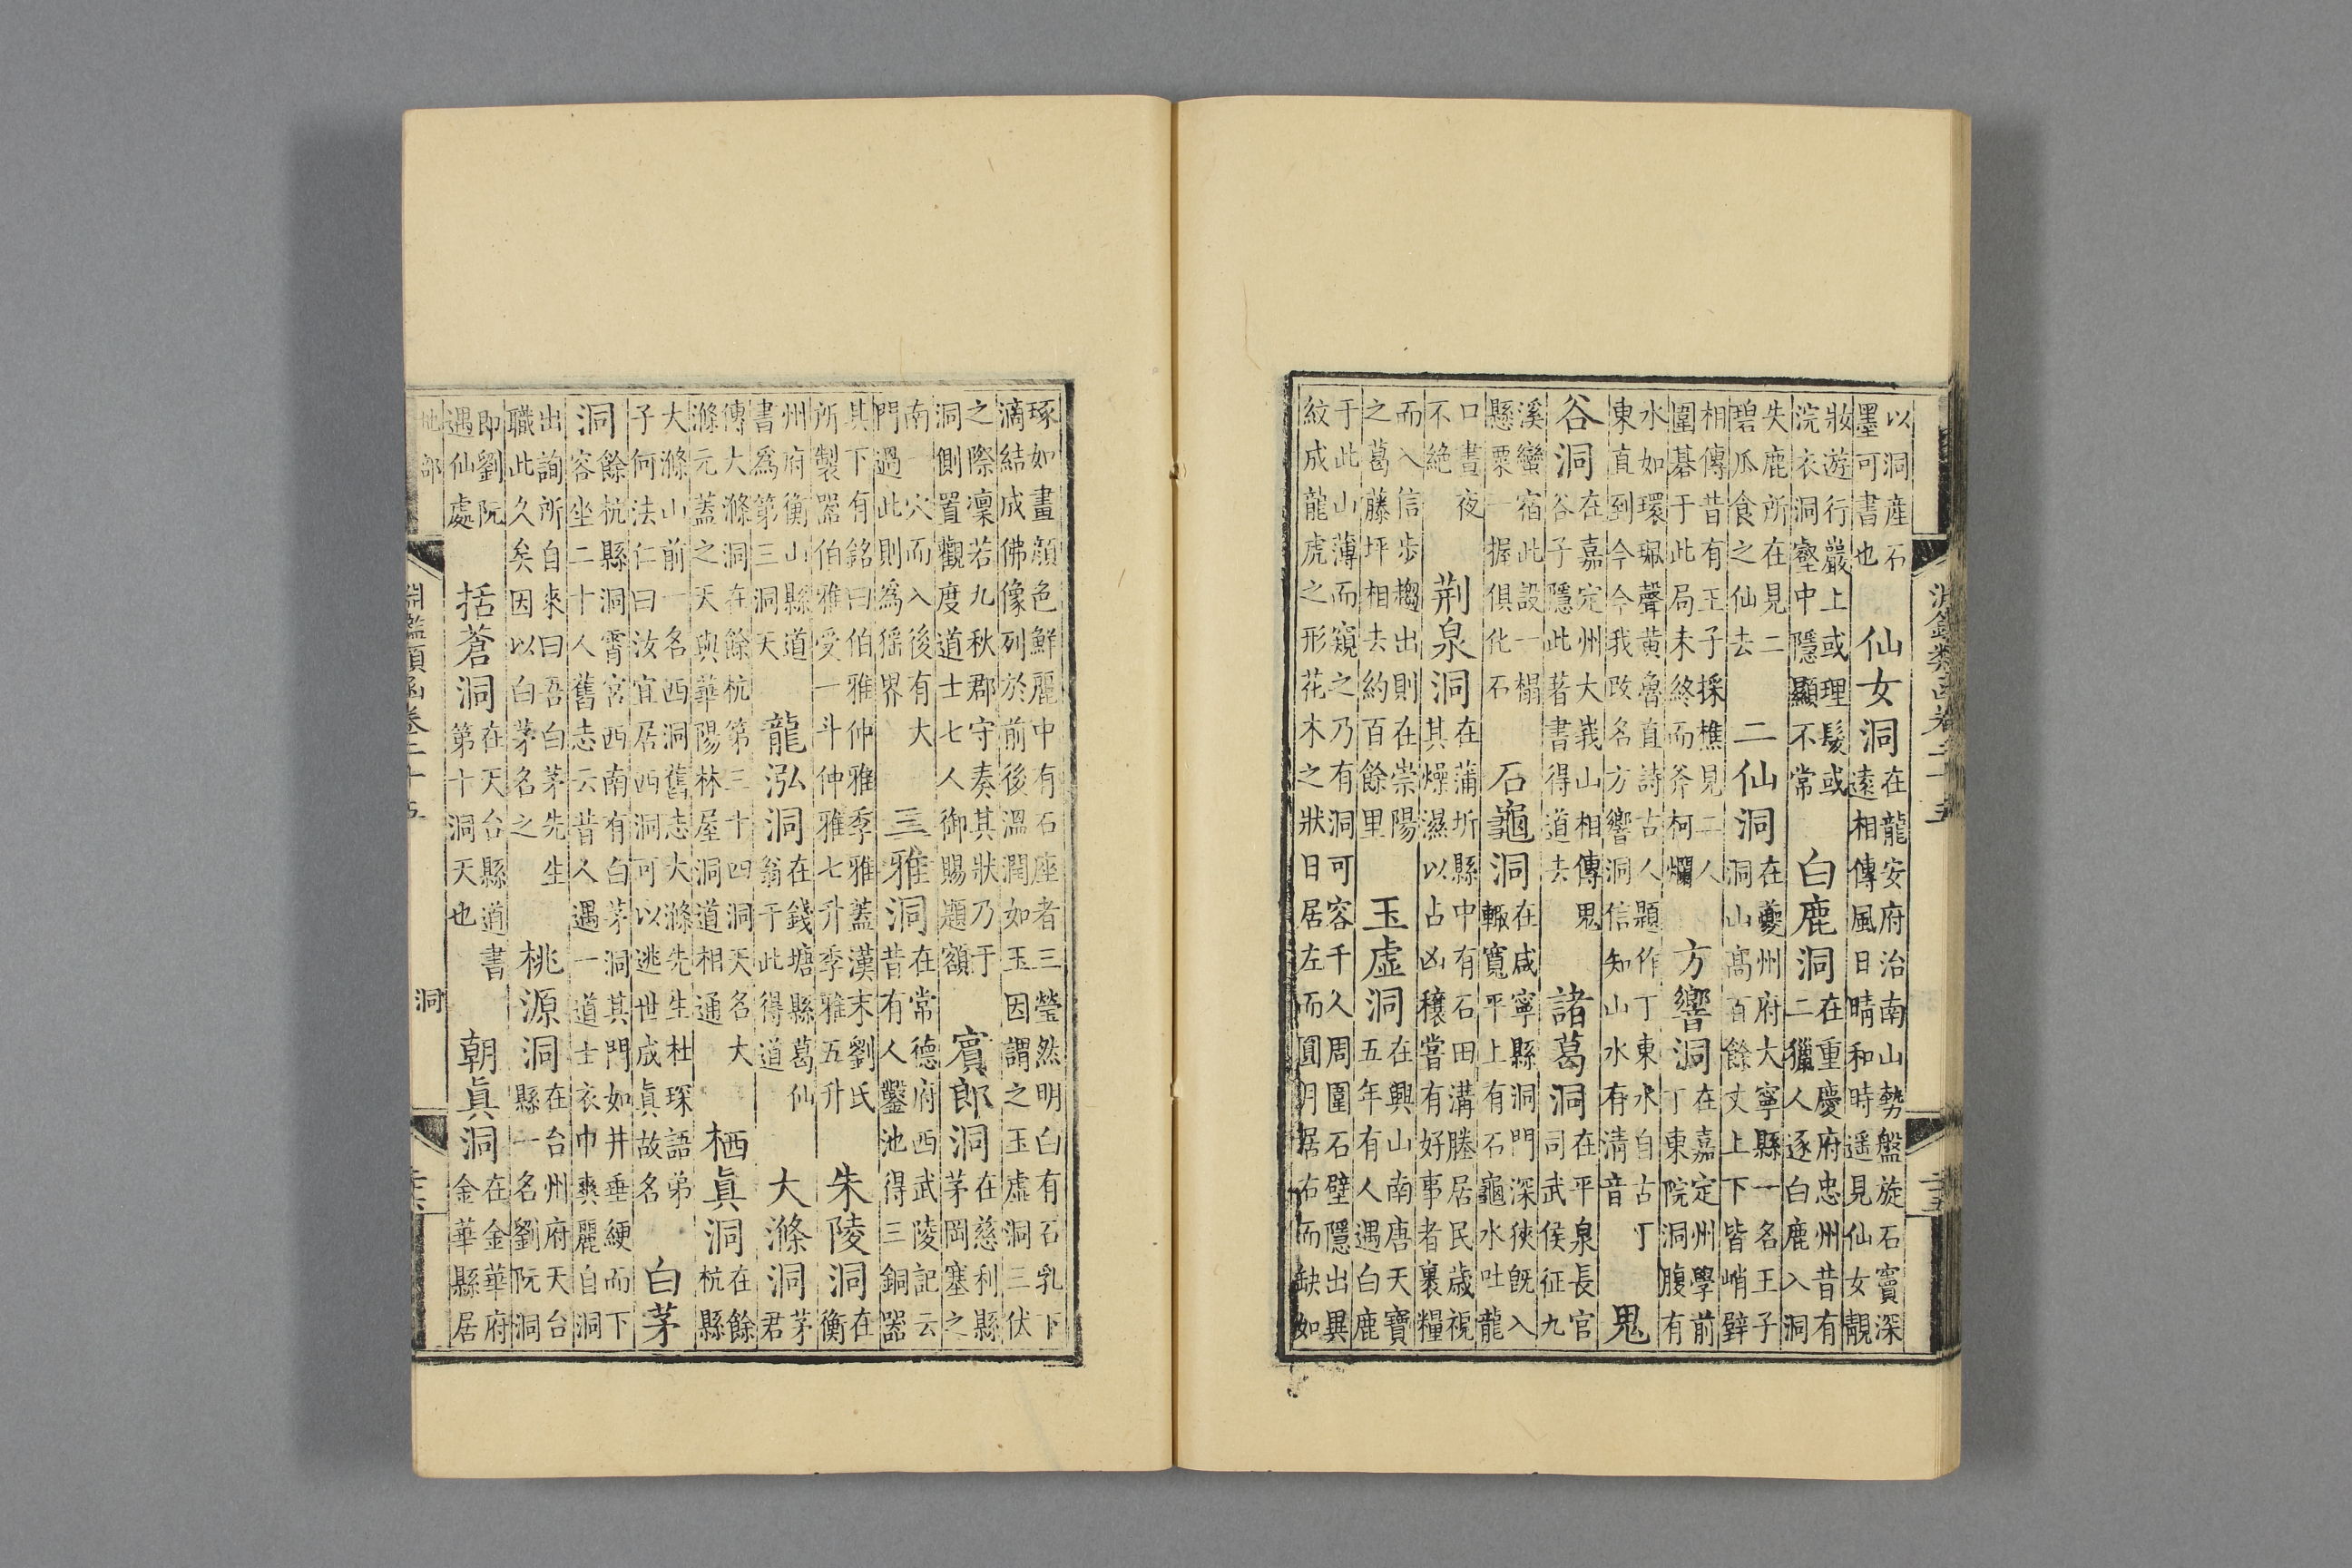 淵鑑類函卷二十五
二十五
以洞產石墨可書也 仙女洞 在龍安府治南山勢盤旋石竇深遠相傳風日晴和時遥見仙女靚
妝遊行巖上或理髮或浣衣洞壑中隱顯不常 白鹿洞 在重慶府忠州昔有二獵人逐白鹿入洞
失鹿所在見二碧瓜食之仙去 二仙洞 在夔州府大寧縣一名王子洞山高百餘丈上下皆峭壁
相傳昔有王子採樵見二人圍碁于此局未終而斧柯爛 方響洞 在嘉定州學前丁東院洞腹有
水如環珮聲黄魯直詩古人題作丁東水自古丁東直到今今我改名方響洞信知山水有清音 鬼
谷洞 在嘉定州大峩山相傳鬼谷子隱此著書得道去 諸葛洞 在平泉長官司武侯征九
溪蠻宿此設一榻懸粟一握俱化石 石龜洞 在咸寧縣洞門深狹旣入輙寬平上有石龜水吐龍
口晝夜不絶 荆泉洞 在蒲圻縣中有石田溝塍居民歳視其燥濕以占凶穰嘗有好事者裹糧
而入信步趨出則在崇陽之葛藤坪相去約百餘里 玉虚洞 在興山南唐天寶五年有人遇白鹿
于此山薄而窺之乃有洞可容千人周圍石壁隱出異紋成龍虎之形花木之狀日居左而圓月居右而缺如
琢如畫顔色鮮麗中有石座者三瑩然明白有石乳下滴結成佛像列於前後溫潤如玉因謂之玉虚洞三伏
之際凜若九秋郡守奏其狀乃于洞側置觀度道士七人御賜題額 賓郎洞 在慈利縣茅岡塞之
南一穴而入後有大門過此則爲猺界 三雅洞 在常德府西武陵記云昔有人鑿池得三銅器
其下有銘曰伯雅仲雅季雅蓋漢末劉氏所製器伯雅受一斗仲雅七升季雅五升 朱陵洞 在衡
州府衡山縣道書爲第三洞天 龍泓洞 在錢塘縣葛仙翁于此得道 大滌洞 茅君
傳大滌洞在餘杭第三十四洞天名大滌元蓋之天與華陽林屋洞道相通 栖眞洞 在餘杭縣
大滌山前一名西洞舊志大滌先生杜琛語弟子何法仁曰汝宜居西洞可以逃世成眞故名 白茅
洞 餘杭縣洞霄宮西南有白茅洞其門如井垂綆而下容坐二十人舊志云昔人遇一道士衣巾爽麗自洞
出詢所自來曰吾白茅先生職此久矣因以白茅名之 桃源洞 在台州府天台縣一名劉阮洞
即劉阮遇仙處 括蒼洞 在天台縣道書第十洞天也 朝眞洞 在金華府金華縣居
地部
淵鑑類函卷二十五
洞
二十六